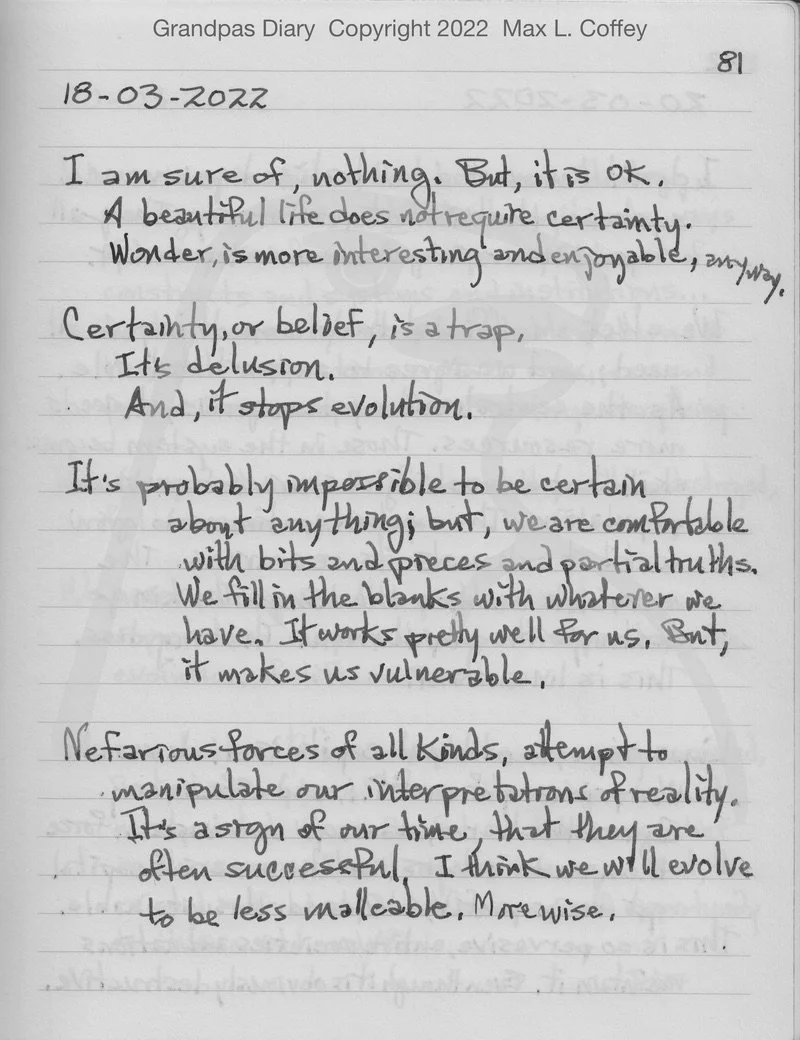 Grandpas Diary Copyright 2022 Max L. Coffey
81
18-03-2022
I am sure of, nothing. But, it is OK.
A beautiful life does not require certainty.
Wonder, is more interesting and enjoyable, anyway.
Certainty, or belief, is a trap.
It's delusion.
And, it stops evolution.
It's probably impossible to be certain
about anything; but, we are comfortable
with bits and pieces and partial truths.
We fill in the blanks with whatever we
have. It works pretty well for us. But,
it makes us vulnerable.
Nefarious forces of all kinds, attempt to
manipulate our interpretations of reality.
It's a sign of our time, that they are
often successful. I think we will evolve
to be less malleable. More wise.